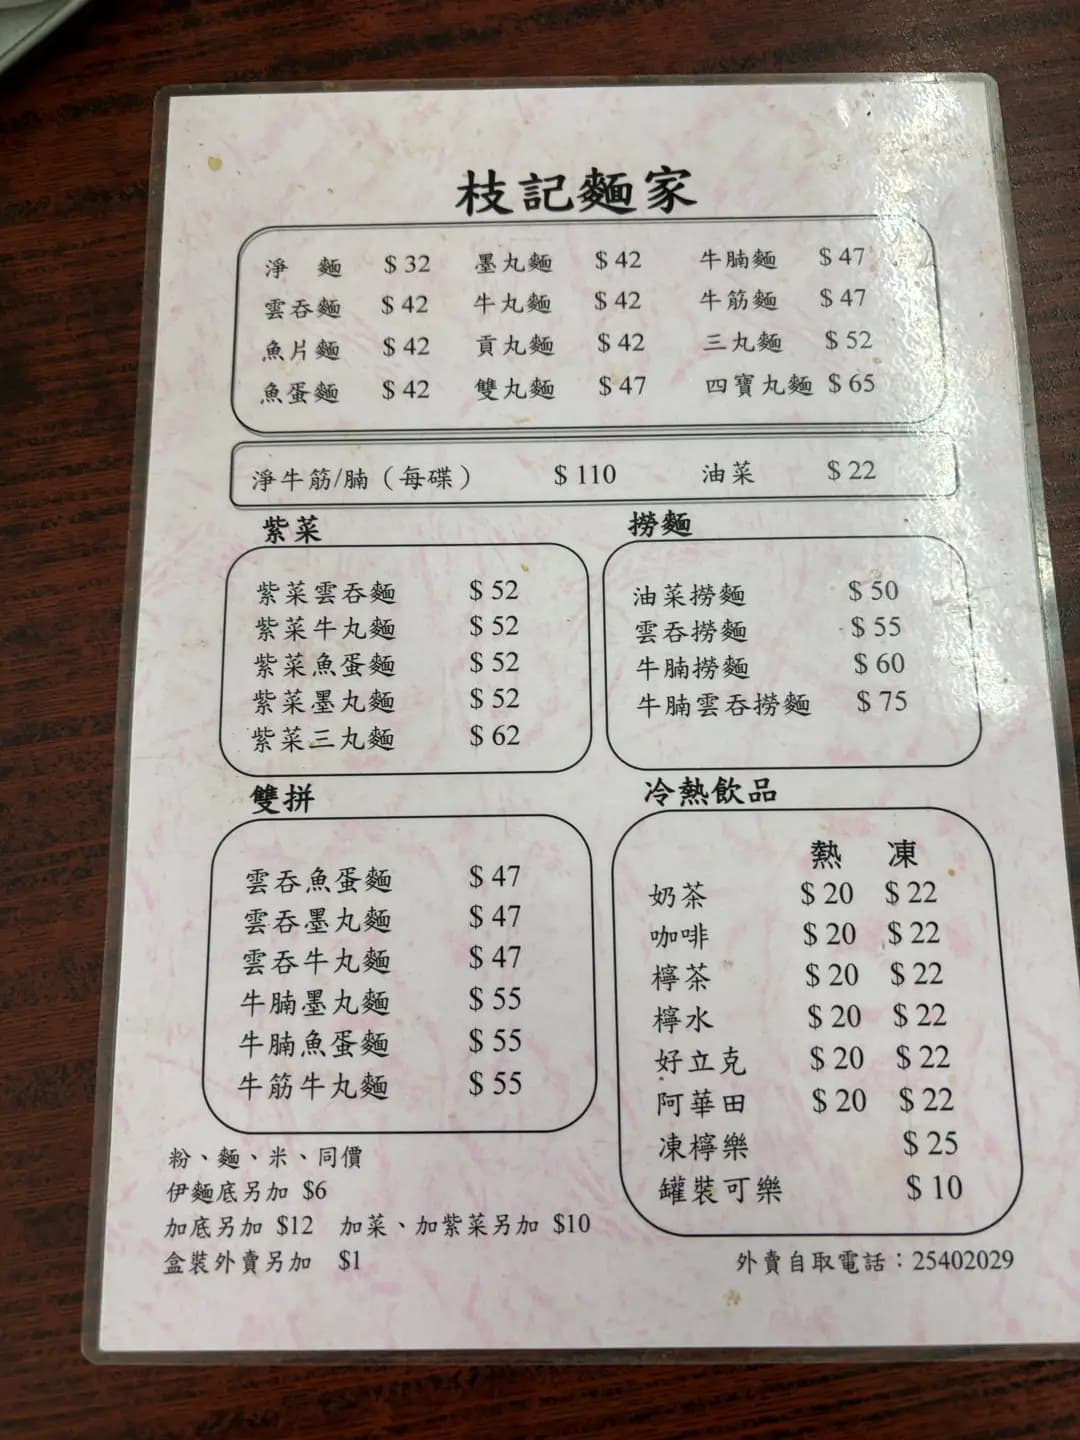 枝記麵家
淨 麵 $32 墨丸麵 $42 牛腩麵 $47
雲吞麵 $42 牛丸麵 $42 牛筋麵 $47
魚片麵 $42 貢丸麵 $42 三丸麵 $52
魚蛋麵 $42 雙丸麵 $47 四寶丸麵 $65
淨牛筋/腩（每碟） $110 油菜 $22
紫菜
紫菜雲吞麵 $52
紫菜牛丸麵 $52
紫菜魚蛋麵 $52
紫菜墨丸麵 $52
紫菜三丸麵 $62
撈麵
油菜撈麵 $50
雲吞撈麵 $55
牛腩撈麵 $60
牛腩雲吞撈麵 $75
雙拼
雲吞魚蛋麵 $47
雲吞墨丸麵 $47
雲吞牛丸麵 $47
牛腩墨丸麵 $55
牛腩魚蛋麵 $55
牛筋牛丸麵 $55
冷熱飲品
熱 凍
奶茶 $20 $22
咖啡 $20 $22
檸茶 $20 $22
檸水 $20 $22
好立克 $20 $22
阿華田 $20 $22
凍檸樂 $25
罐裝可樂 $10
粉、麵、米、同價
伊麵底另加 $6
加底另加 $12 加菜、加紫菜另加 $10
盒裝外賣另加 $1
外賣自取電話：25402029